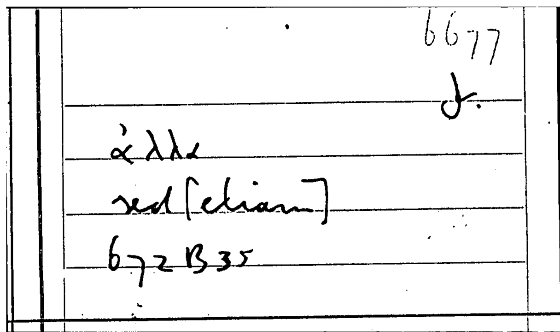 6677
d.
ἀλλα
sed [etiam]
672 B 35